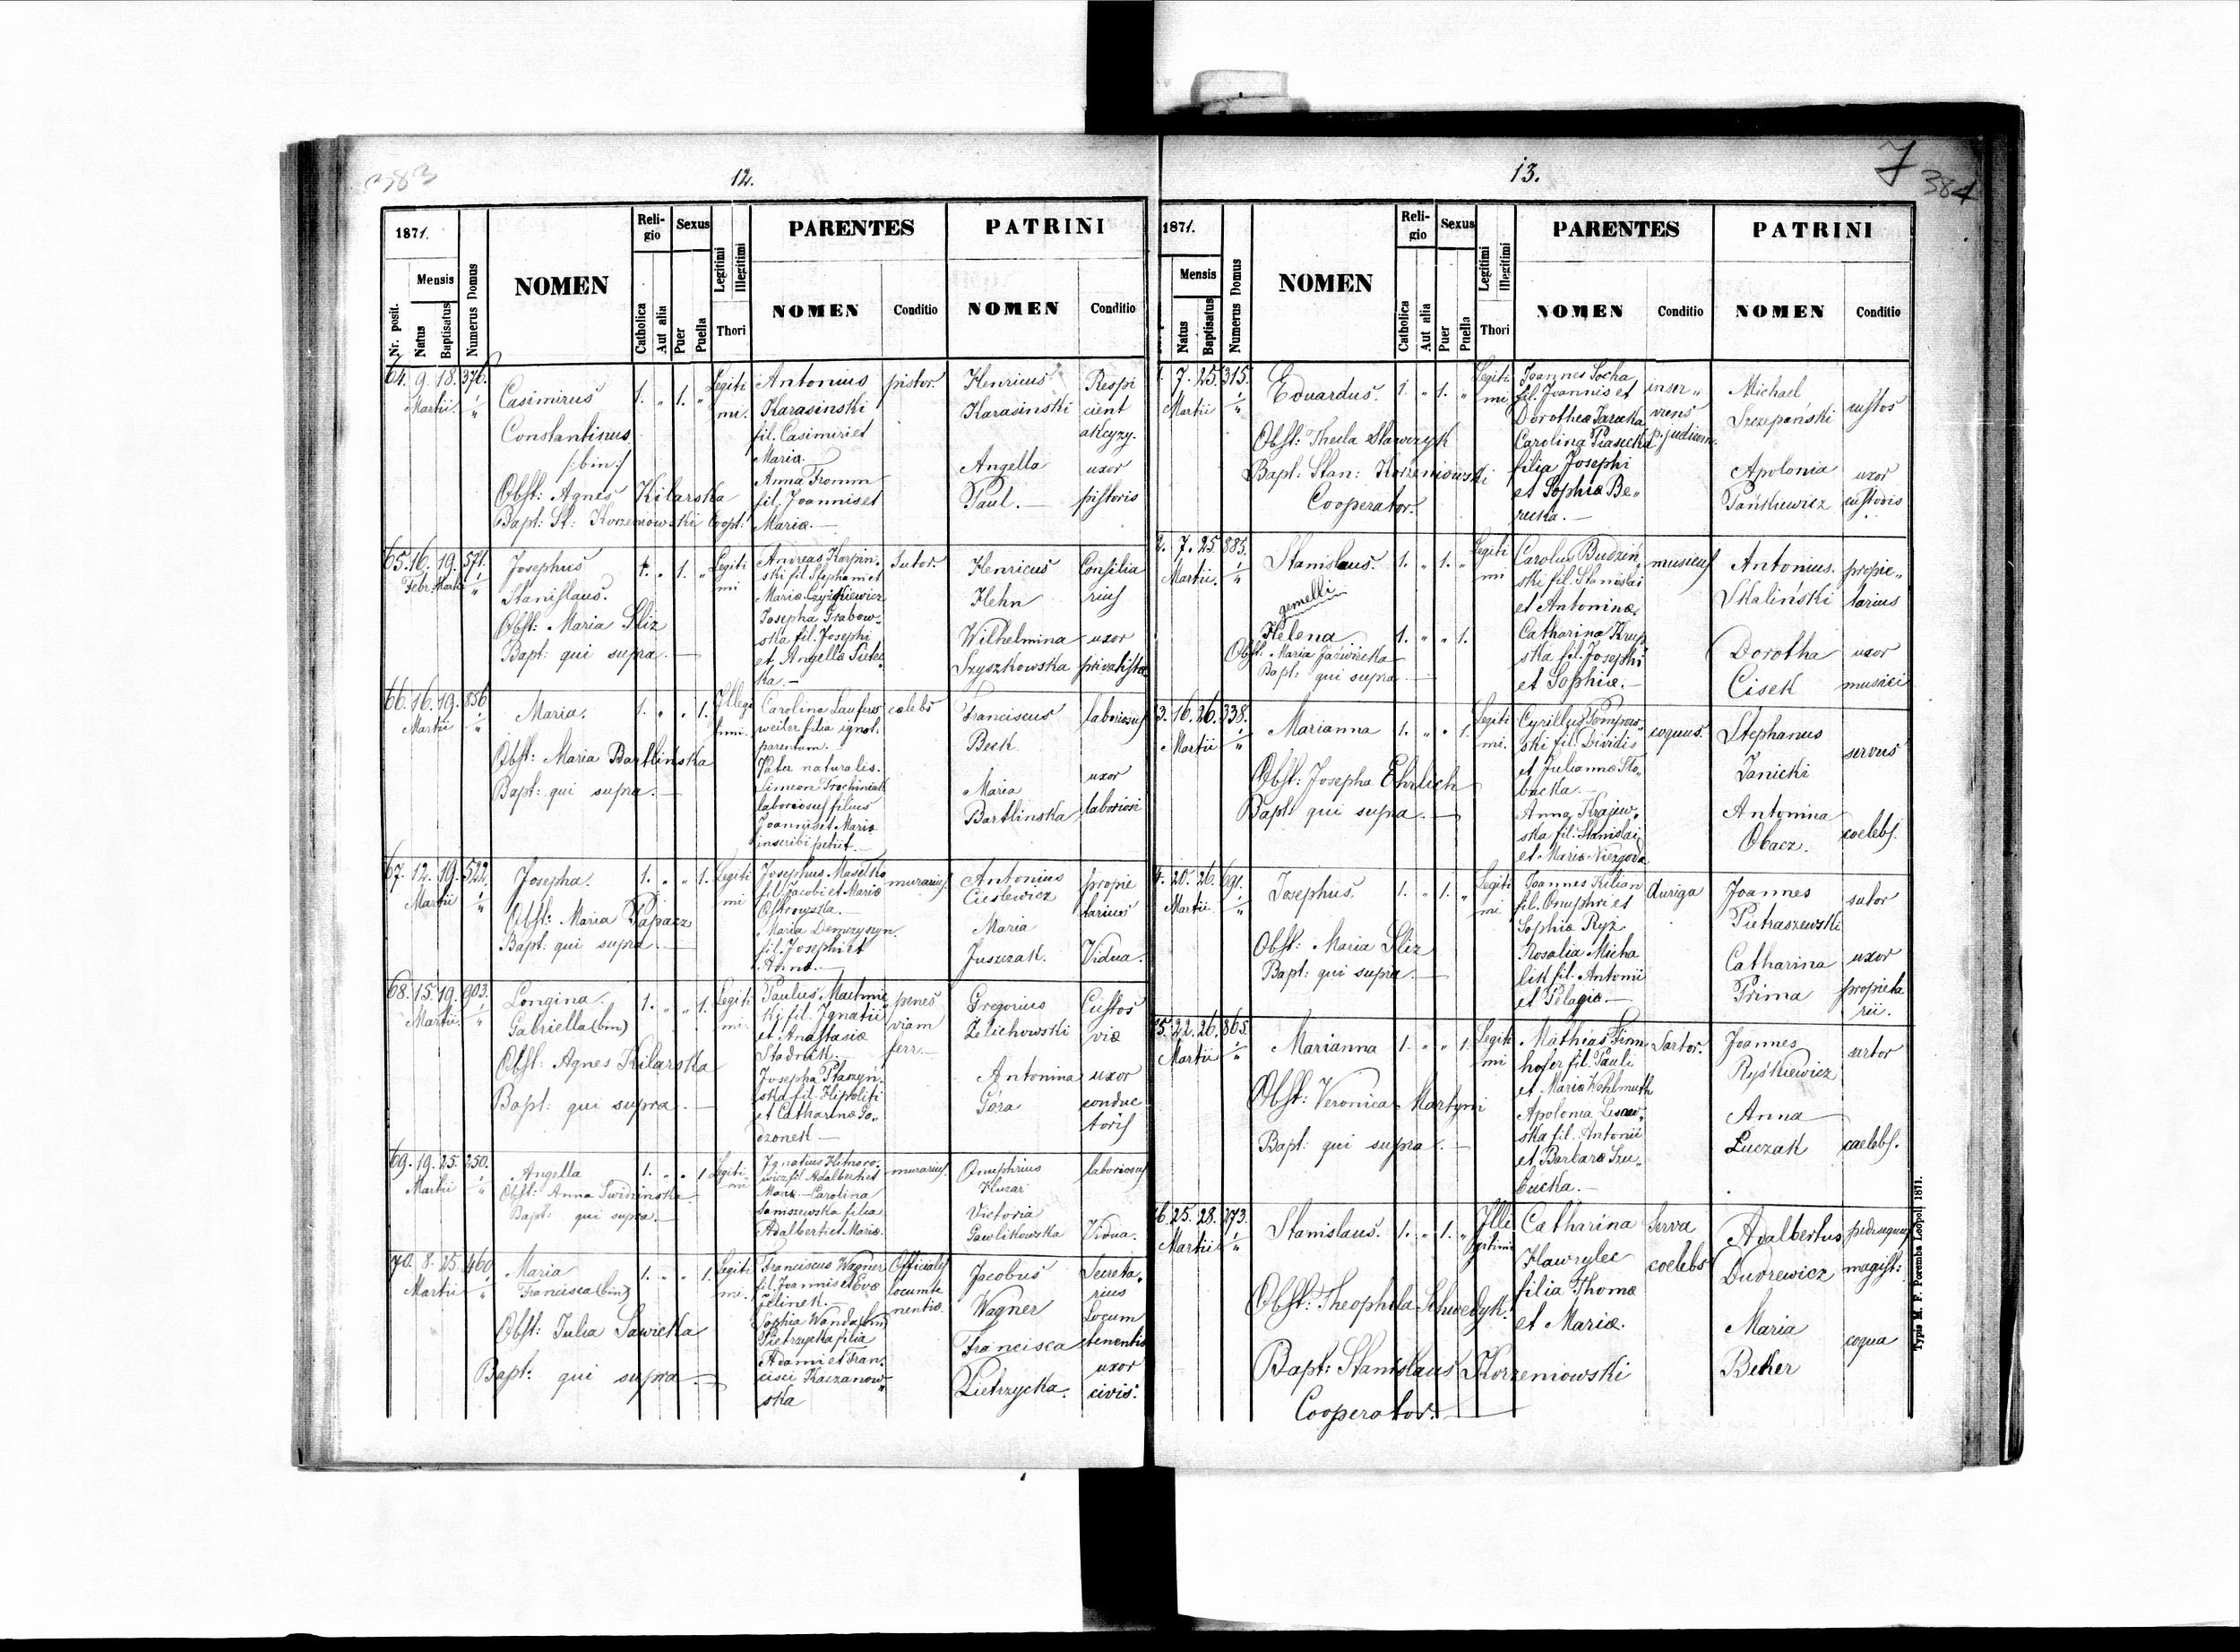 383
12.
1871.
NOMEN
Religio
Sexus
Legitimi
Illegitimi
PARENTES
PATRINI
Nr. posit.
Mensis
Natus
Baptisatus
Numerus Domus
Catholica
Aut alia
Puer
Puella
Thori
NOMEN
Conditio
NOMEN
Conditio
64. 9. 18. 376.
Martii.
Casimirus
Constantinus
/:bin:/
Obst: Agnes Kilarska
Bapt: St: Korzeniowski Coopt:
1. " 1. "
Legiti
mi.
Antonius
Karasinski
fil. Casimiri et
Maria.
Anna Fromm
fil. Joannis et
Mariæ.—
pistor.
Henricus
Karasinski
Angella
Paul.—
Respi
cient
akcyzy.
uxor
pistoris
65. 16. 19. 571.
Febr. Martii
Josephus
Stanislaus.
Obst: Maria Sliz
Bapt: qui supra.—
1. " 1. "
Legiti
mi
Andreas Karpin-
ski fil. Stephani et
Mariæ Czyżkiewicz
Josepha Grabow-
ska fil. Josephi
et Angella
ka.—
Sutor.
Henricus
Hehn
Wilhelmina
Szyszkowska
Consilia
rius
uxor
privatista
66. 16. 19. 856
Martii
Maria.
Obst: Maria Bartlinska
Bapt: qui supra.—
1. " " 1.
Illegi
timi.
Carolina Laufers
weiler filia ignot.
parentum.—
Pater naturalis.
Simeon Trochiniak
laboriosus filius
Joannis et Mariæ
inscribi petiit.—
cœlebs
Franciscus
Beck
Maria
Bartlinska
laboriosus
uxor
laboriosi
67. 12. 19. 522.
Martii
Josepha.
Obst: Maria Papasz
Bapt: qui supra.—
1. " " 1.
Legiti
mi
Josephus Masełko
fil. Jacobi et Mariæ
Ostrowska.—
Maria Demczyszyn
fil. Josephi et
Anna.—
murarius
Antonius
Cieslewicz
Maria
Juszczak.
proprie
tarius
Vidua.
68. 15. 19. 903.
Martii.
Longina
Gabriella (bin)
Obst: Agnes Kilarska
Bapt: qui supra.—
1. " " 1.
Legiti
mi.
Paulus Machnic
ki fil. Ignatii
et Anastasiæ
Stadnik.—
Josepha Ptaszyń-
ska fil. Hipoliti
et Catharinæ Go-
dzonek—
penes
viam
ferr.—
Gregorius
Zelichowski
Antonina
Góra
Custos
viæ
uxor
conduc
toris
69. 19. 25. 250.
Martii
Angella
Obst: Anna Swidzinska
Bapt: qui supra.—
1. " " 1
Legiti
mi
Ignatius Klimoro-
wicz fil. Adalberti et
Mariæ — Carolina
Saniszewska filia
Adalberti et Mariæ.
murarius.
Onuphrius
Huzar
Victoria
Gawlikowska
laboriosus
Vidua.
70. 8. 25. 460
Martii
Maria
Francisca (bin)
Obst: Julia Sawicka
Bapt: qui supra.—
1. " " 1.
Legiti
mi.
Franciscus Wagner
fil. Joannis et Evæ
Jelinek.—
Sophia Wanda (bin)
Pietrzycka filia
Adami et Fran-
cisci Kaczanow-
ska
Officialis
locumte
nentiæ.
Jacobus
Wagner
Francisca
Pietrzycka.
Secreta-
rius
Locum
tenentiæ
uxor
civis.
13.
7
384
1871.
NOMEN
Religio
Sexus
Legitimi
Illegitimi
PARENTES
PATRINI
Mensis
Natus
Baptisatus
Numerus Domus
Catholica
Aut alia
Puer
Puella
Thori
NOMEN
Conditio
NOMEN
Conditio
1. 7. 25. 315.
Martii
Eduardus.
Obst: Thecla Slawczyk
Bapt: Stan: Korzeniowski
Cooperator.
1. " 1. "
Legiti
mi.
Joannes Socha
fil. Joannis et
Dorotheæ Jarecka
Carolina Piasecka
filia Josephi
et Sophiæ Be-
recka.—
inser-
viens
p. judicium.
Michael
Szczepański
Apolonia
Pańkiewicz
custos
uxor
custodis
2. 7. 25. 885.
Martii.
Stanislaus.
gemelli
Helena
Obst: Maria Jaźwiecka
Bapt: qui supra.—
1. " 1. "
1. " " 1.
Legiti
mi
Carolus Budziń
ski fil. Stanislai
et Antoninæ.
Catharina Krup
ska fil. Josephi
et Sophiæ.—
musicus
Antonius.
Skaliński
Dorotha
Cisek
proprie-
tarius
uxor
musici
3. 16. 26. 338.
Martii
Marianna
Obst: Josepha Ehrlich
Bapt: qui supra.—
1. " " 1.
Legiti
mi.
Cyrillus Pompow-
ski fil. Dividis
et Juliannæ Sło-
bucka.—
Anna Krajew-
ska fil. Stanislai
et Mariæ Niezgoda
coquus.
Stephanus
Janicki
Antonina
Obacz.
servus
coelebs.
4. 20. 26. 691.
Martii
Josephus.
Obst: Maria Sliz
Bapt: qui supra.—
1. " 1. "
Legiti
mi
Joannes Kilian
fil. Onuphri et
Sophiæ Ryż
Rosalia Micha
lik fil. Antonii
et Pelagiæ—
Auriga
Joannes
Pietraszewski
Catharina
Prima
sutor
uxor
proprieta
rii.
5. 22. 26. 865.
Martii
Marianna
Obst: Veronica Martyni
Bapt: qui supra.—
1. " " 1.
Legiti
mi
Mathias Finn
hofer fil. Pauli
et Mariæ Wohlmuth
Apolonia Lisow-
ska fil. Antonii
et Barbaræ Szu-
bucka.—
Sartor.
Joannes
Ryśkiewicz
Anna
Łuczak
sartor
caelebs.
6. 25. 28. 173.
Martii
Stanislaus.
Obst: Theophila Schwedyk.
Bapt: Stanislaus Korzeniowski
Cooperator.—
1. " 1. "
Ille
gitimi
Catharina
Hawrylec
filia Thomæ
et Mariæ.
Serva
coelebs
Adalbertus
Duorewicz
Maria
Beker
pedisequus
magist:
coqua
Typis M. F. Poremba Leopoli 1871.